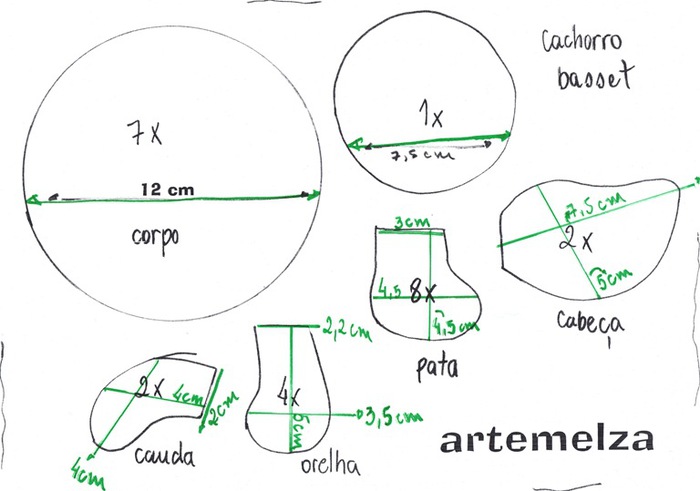 7x
12 cm
corpo
1x
7,5 cm
Cachorro
basset
7,5cm
2x
5cm
cabeça
3cm
4,5
8x
4,5cm
pata
2x
4cm
2cm
4cm
cauda
2,2cm
4x
5cm
3,5cm
orelha
artemelza